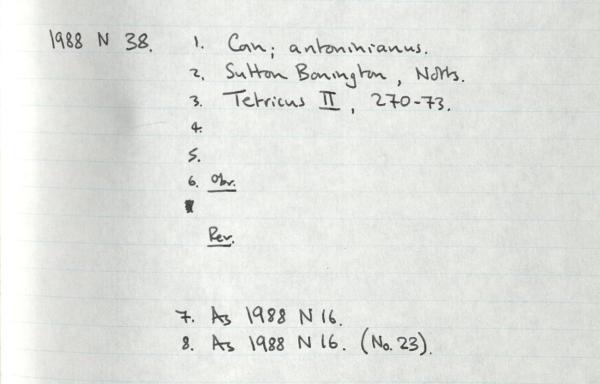 1988 N 38. 1. Coin; antoninianus.
2. Sutton Bonington, Notts.
3. Tetricus II, 270-73.
4.
5.
6. Obv.
Rev.
7. As 1988 N 16.
8. As 1988 N 16. (No. 23).